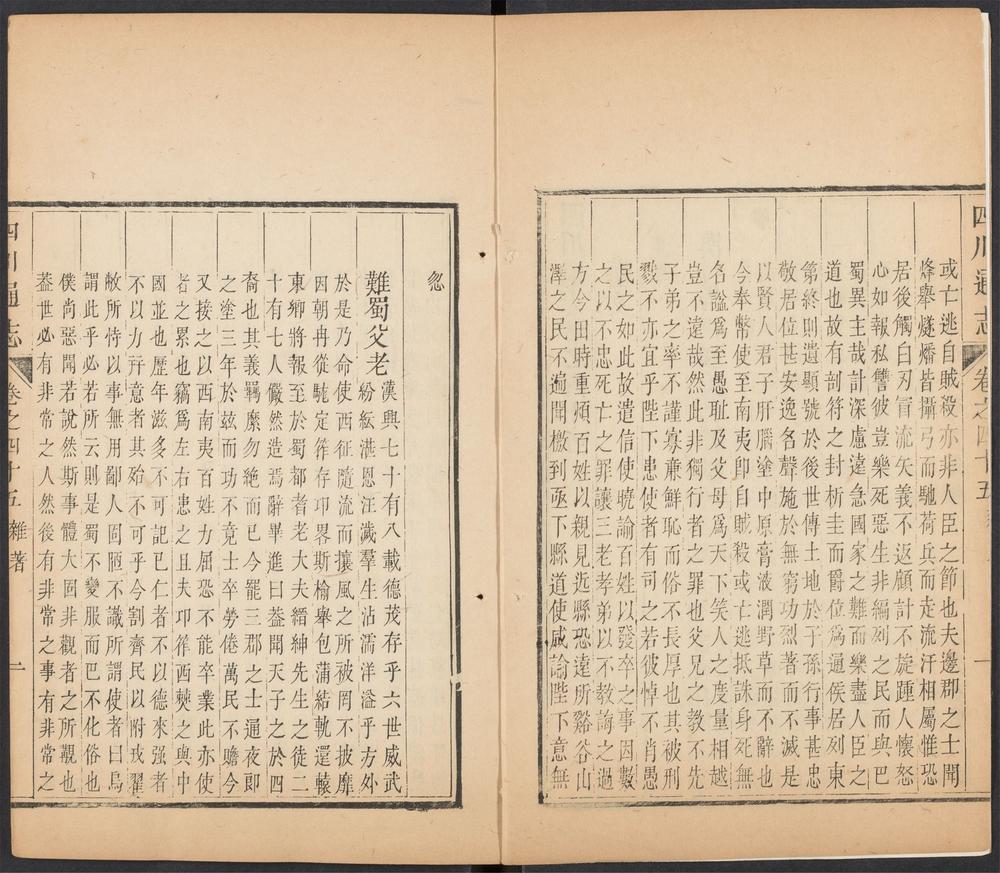 四川通志
卷之四十五
一
或亡逃自賊殺亦非人臣之節也夫邊郡之士聞
烽舉燧燔皆攝弓而馳荷兵而走流汗相屬惟恐
居後觸白刃冒流矢義不返顧計不旋踵人懷怒
心如報私讐彼豈樂死惡生非編列之民而與巴
蜀異主哉計深慮遠急國家之難而樂盡人臣之
道也故有剖符之封析圭而爵位為通侯居列東
第終則遺顯號於後世傳土地於子孫行事甚忠
敬居位甚安逸名聲施於無窮功烈著而不滅是
以賢人君子肝腦塗中原膏液潤野草而不辭也
今奉幣使至南夷即自賊殺或亡逃抵誅身死無
名諡爲至愚耻及父母爲天下笑人之度量相越
豈不遠哉然此非獨行者之罪也父兄之教不先
子弟之率不謹寡亷鮮恥而俗不長厚也其被刑
戮不亦宜乎陛下患使者有司之若彼悼不肖愚
民之如此故遣信使曉諭百姓以發卒之事因數
之以不忠死亡之罪讓三老孝弟以不教誨之過
方今田時重煩百姓以親見近縣恐遠所谿谷山
澤之民不遍聞檄到亟下縣道使咸諭陛下意無
忽
難蜀父老
漢興七十有八載德茂存乎六世威武
紛紜湛恩汪濊羣生沾濡洋溢乎方外
於是乃命使西征隨流而攘風之所被罔不披靡
因朝冉從駹定筰存卭畧斯榆舉包蒲結軌還轅
東鄉將報至於蜀都耆老大夫縉紳先生之徒二
十有七人儼然造焉辭畢進曰葢聞天子之於四
裔也其義羈縻勿絶而已今罷三郡之士通夜郎
之塗三年於兹而功不竟士卒勞倦萬民不贍今
又接之以西南夷百姓力屈恐不能卒業此亦使
者之累也竊爲左右患之且夫卭筰西僰之與中
國並也歴年滋多不可記已仁者不以德來强者
不以力幷意者其殆不可乎今割齊民以附戎翟
敝所恃以事無用鄙人固陋不識所謂使者曰烏
謂此乎必若所云則是蜀不變服而巴不化俗也
僕尚惡聞若說然斯事體大固非觀者之所覯也
葢世必有非常之人然後有非常之事有非常之
四川通志
卷之四十五
雜著
一